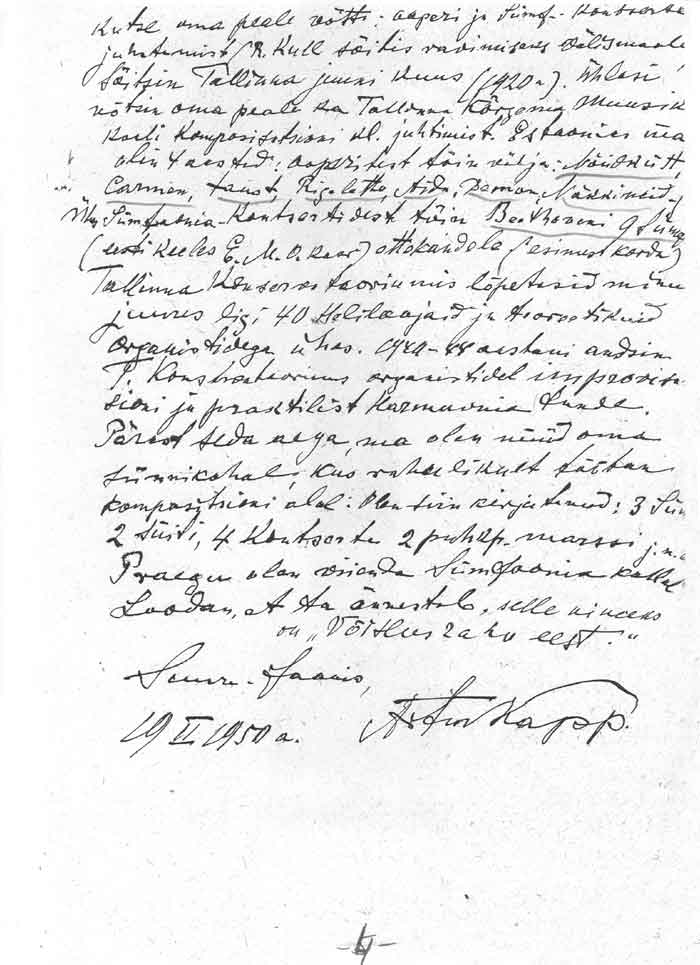 Kutse oma peale võtte: ooperi ja Sümf. Kontserte
juhatamist (R. Kull sõitis ravimiseks välismaale
Sõitsin Tallinna juuni kuus (1920a). Ühlasi
võtsin oma peale ka Tallinna Kõrgema Muusik
Kooli Kompositsioni kl. juhtimist. Estoonias ma
olin 4 aastad: ooperitest tõin välja: Nõidkütt,
Carmen, Faust, Rigoletto, Aida, Demon, Näkkineid
Sümfoonia-Kontsertidest tõin Beethoveni 9 Sümf
(eesti keeles E. M. O. Koor) ettekandele (esimest korda)
Tallinna Konservatooriumis lõpetasid minu
juures ligi 40 Heliloojaid ja teoreetikuid
organistidega ühes. aastani andsin
T. Konservatooriumis organistidel improvisa
sioni ja praktilist Harmoonia tunde.
Pärast seda aega, ma olen nüüd oma
sünnikohal, kus rahulikult töötan
kompositsioni alal: Olen siin kirjutanud: 3 Süm
2 süiti, 4 Kontserte 2 puhkp. marssi j.n.e
Praegu olen viienda Sümfoonia kallal
Loodan, et ta õnnestub, selle nimeks
on „Võitlus rahu eest."
Suure-Jaanis,
19 II 1950 a. Artur Kapp.
-4-